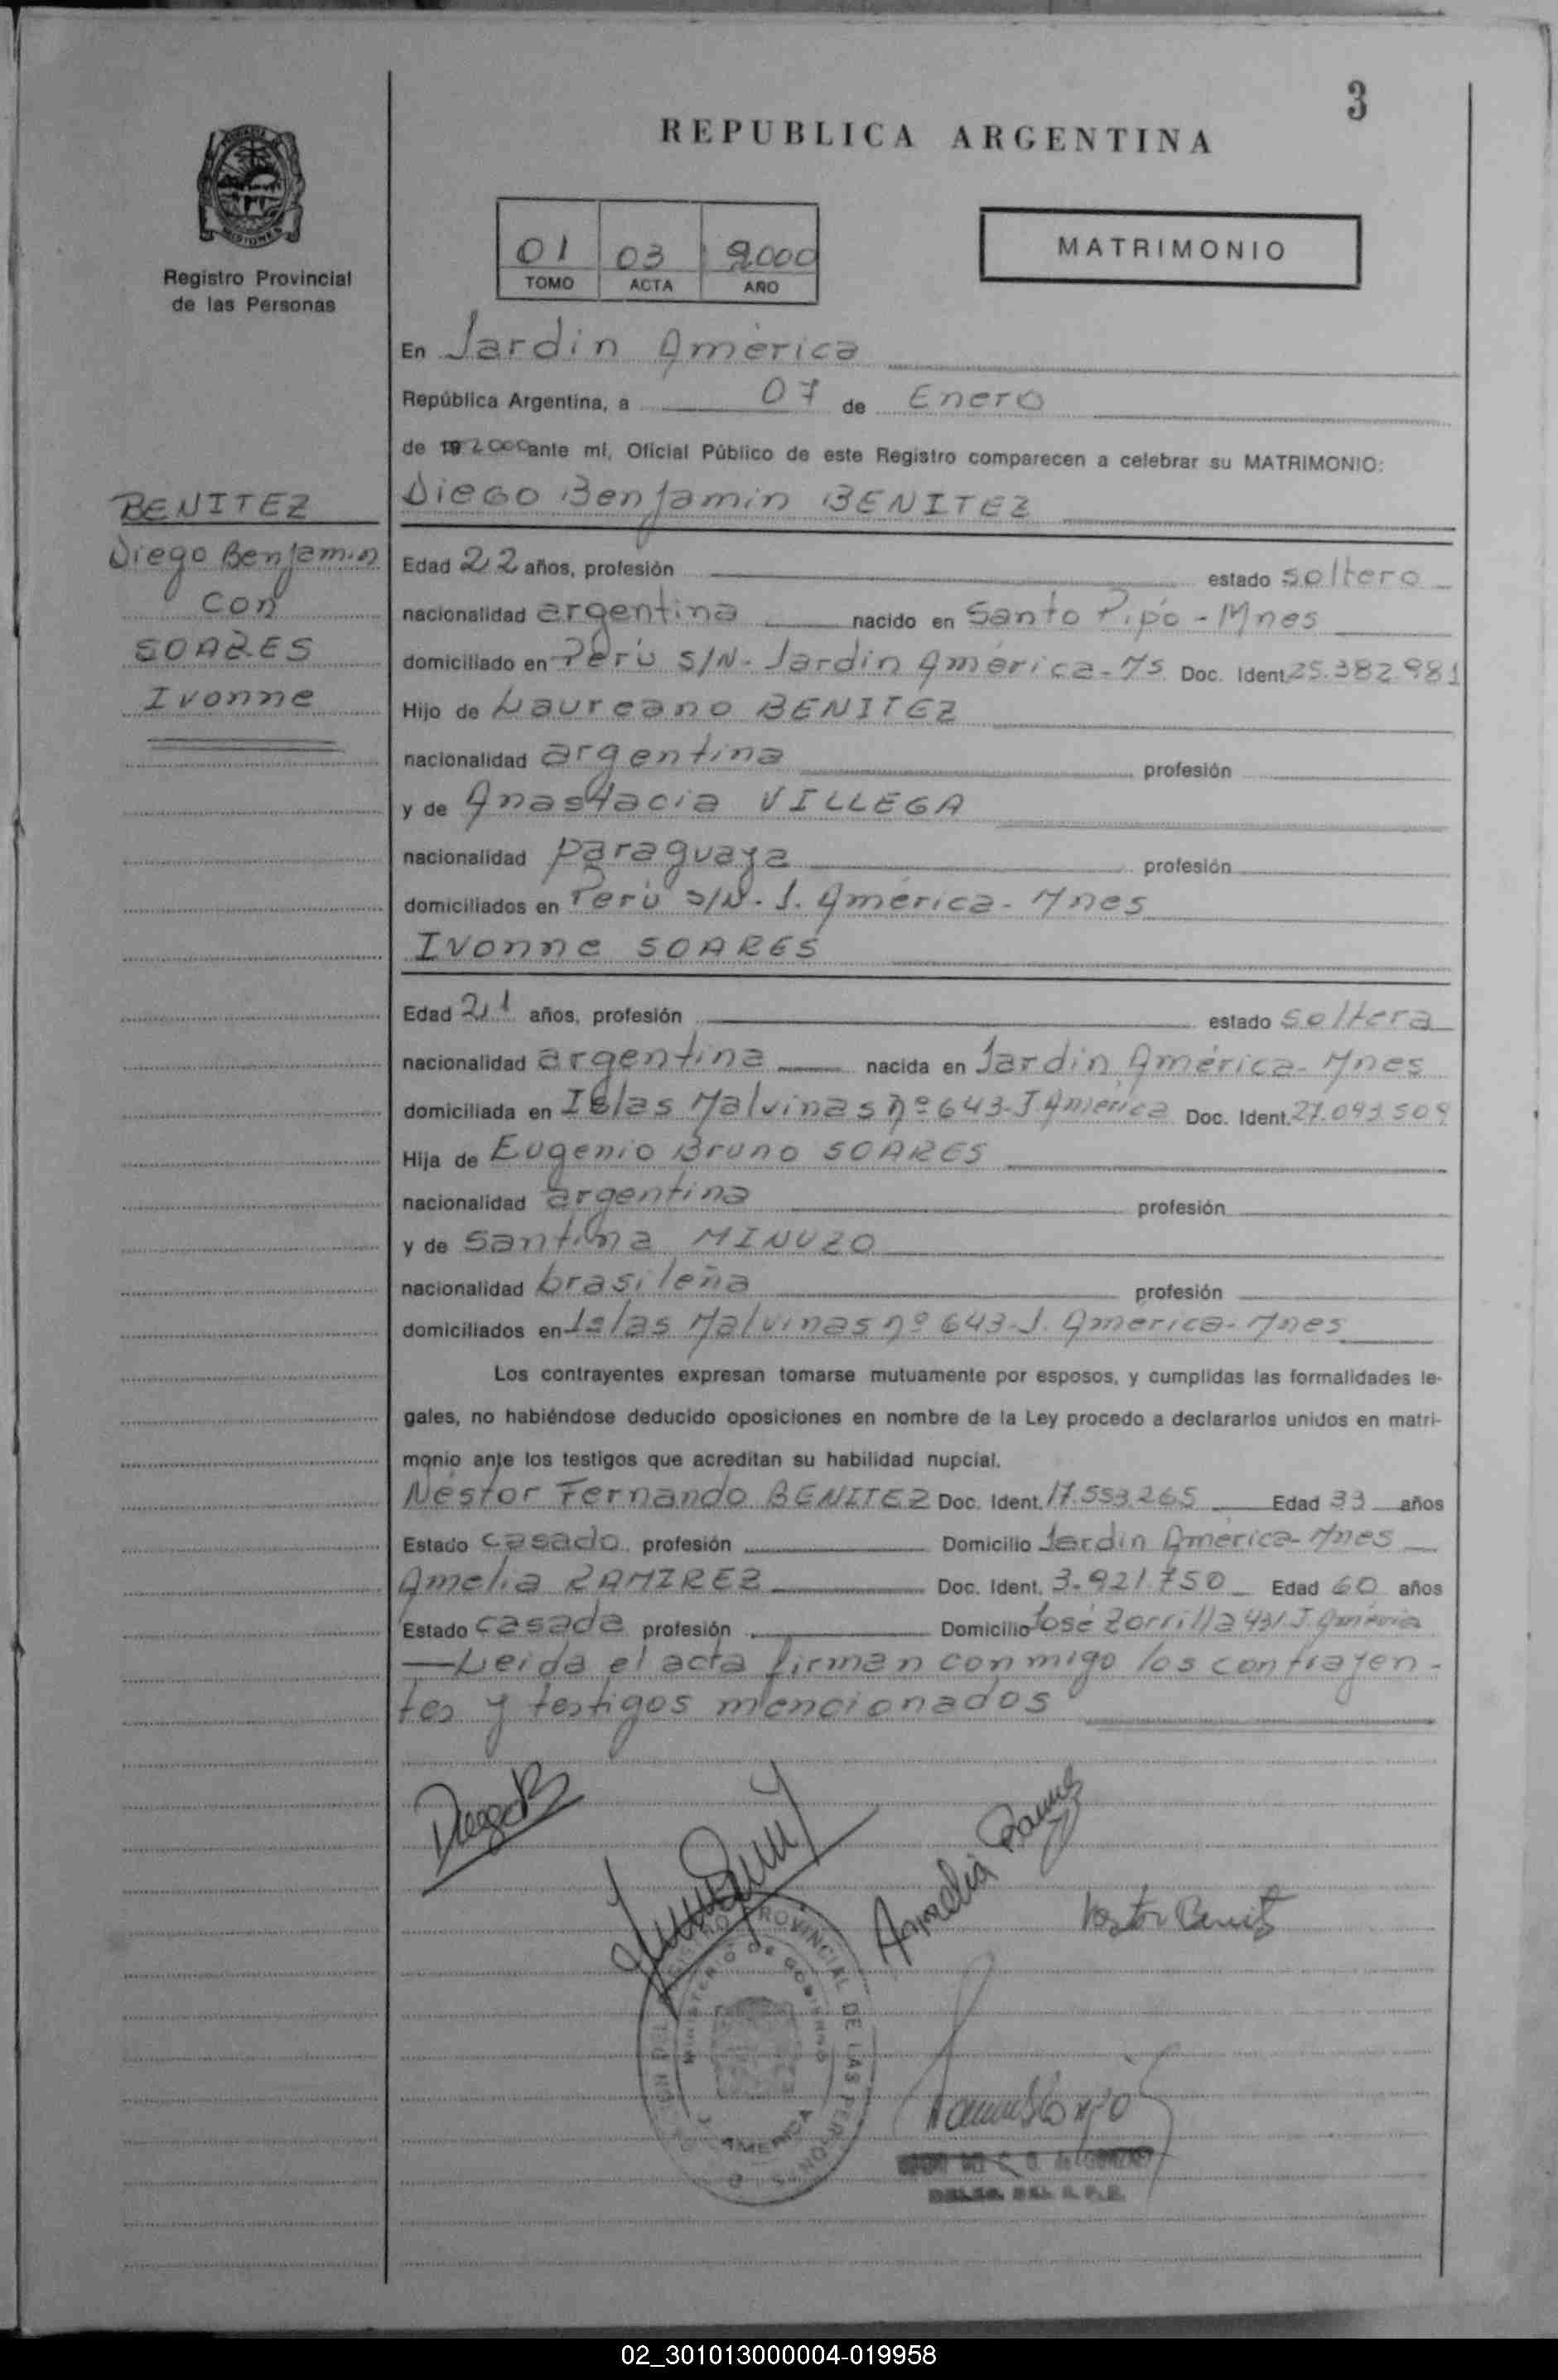 3
REPUBLICA ARGENTINA
MISIONES
Registro Provincial
de las Personas
01 03 2000
TOMO ACTA AÑO
MATRIMONIO
En Jardin América
República Argentina, a 07 de Enero
de 19 2000 ante mí, Oficial Público de este Registro comparecen a celebrar su MATRIMONIO:
Diego Benjamin BENITEZ
BENITEZ
Diego Benjamin
con
SOARES
Ivonne
Edad 22 años, profesión estado soltero
nacionalidad argentina nacido en Santo Pipó - Mnes
domiciliado en Perú S/N - Jardin América - Ms Doc. Ident. 25.382.981
Hijo de Laureano BENITEZ
nacionalidad argentina profesión
y de Anastacia VILLEGA
nacionalidad paraguaya profesión
domiciliados en Perú S/N - J. América - Mnes
Ivonne SOARES
Edad 21 años, profesión estado soltera
nacionalidad argentina nacida en Jardin América - Mnes
domiciliada en Islas Malvinas nº 643 - J América Doc. Ident. 27.093.509
Hija de Eugenio Bruno SOARES
nacionalidad argentina profesión
y de Santina MINUZO
nacionalidad brasileña profesión
domiciliados en Islas Malvinas nº 643 - J. América - Mnes
Los contrayentes expresan tomarse mutuamente por esposos, y cumplidas las formalidades le-
gales, no habiéndose deducido oposiciones en nombre de la Ley procedo a declararlos unidos en matri-
monio ante los testigos que acreditan su habilidad nupcial.
Néstor Fernando BENITEZ Doc. Ident. 17.553.265 Edad 33 años
Estado casado profesión Domicilio Jardin América - Mnes
Amelia RAMIREZ Doc. Ident. 3.921.750 Edad 60 años
Estado casada profesión Domicilio José Zorrilla 431 J. América
Leída el acta firman conmigo los contrayen-
tes y testigos mencionados
Diego B
Amelia Ramirez
Nestor Benitez
REGISTRO PROVINCIAL DE LAS PERSONAS
MINISTERIO DE GOBIERNO
AMERICA
DELEG. DEL R. P. P.
02_301013000004-019958